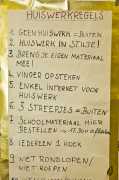 HUISWERKREGELS
1. GEEN HUISWERK = BUITEN
2. HUISWERK IN STILTE!
3. BRENG JE EIGEN MATERIAAL
MEE!
4. VINGER OPSTEKEN
5. ENKEL INTERNET VOOR
HUISWERK
6. 3 STREEPJES = BUITEN
7. SCHOOLMATERIAAL HIER
BESTELLEN
8. IEDEREEN 1 HOEK
9. NIET RONDLOPEN/
NIET ROEPEN